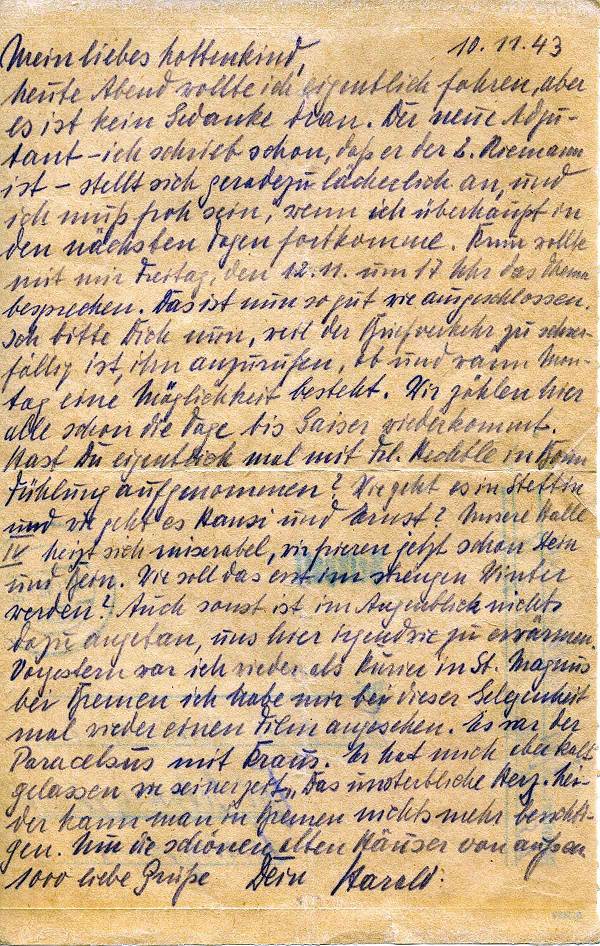 10.11.43
Mein liebes Kottenkind,
heute Abend wollte ich eigentlich fahren, aber
es ist kein Gedanke dran. Der neue Adju-
tant – ich schrieb schon, daß er der L. Riemann
ist – stellt sich geradezu lächerlich an, und
ich muß froh sein, wenn ich überhaupt in
den nächsten Tagen fortkomme. wollte
mit mir Freitag, den 12.11. um 17 Uhr das Thema
besprechen. Das ist nun so gut wie ausgeschlossen.
Ich bitte Dich nun, weil der Briefverkehr zu schwer-
fällig ist, ihn anzurufen, ob und wann Mon-
tag eine Möglichkeit besteht. Wir zählen hier
alle schon die Tage bis Gaiser wiederkommt.
Hast Du eigentlich mal mit Frl. in
Fühlung aufgenommen? Wie geht es in Stettin
und wie geht es Hansi und Ernst? Unsere Halle
IV heizt sich miserabel, wir frieren jetzt schon Stein
und Bein. Wie soll das erst im strengen Winter
werden? Auch sonst ist im Augenblick nichts
dazu angetan, uns hier irgendwie zu erwärmen.
Vorgestern war ich wieder als Kurier in St. Magnus
bei Bremen ich habe mir bei dieser Gelgenheit
mal wieder einen Film angesehen. Es war der
Paracelsus mit Kraus. Er hat mich eben kalt
gelassen wie seinerzeit „Das unsterbliche Herz. Lei-
der kann man in Bremen nichts mehr besichti-
gen. Nur die schönen alten Häuser von außen
1000 liebe Grüße Dein Harald.